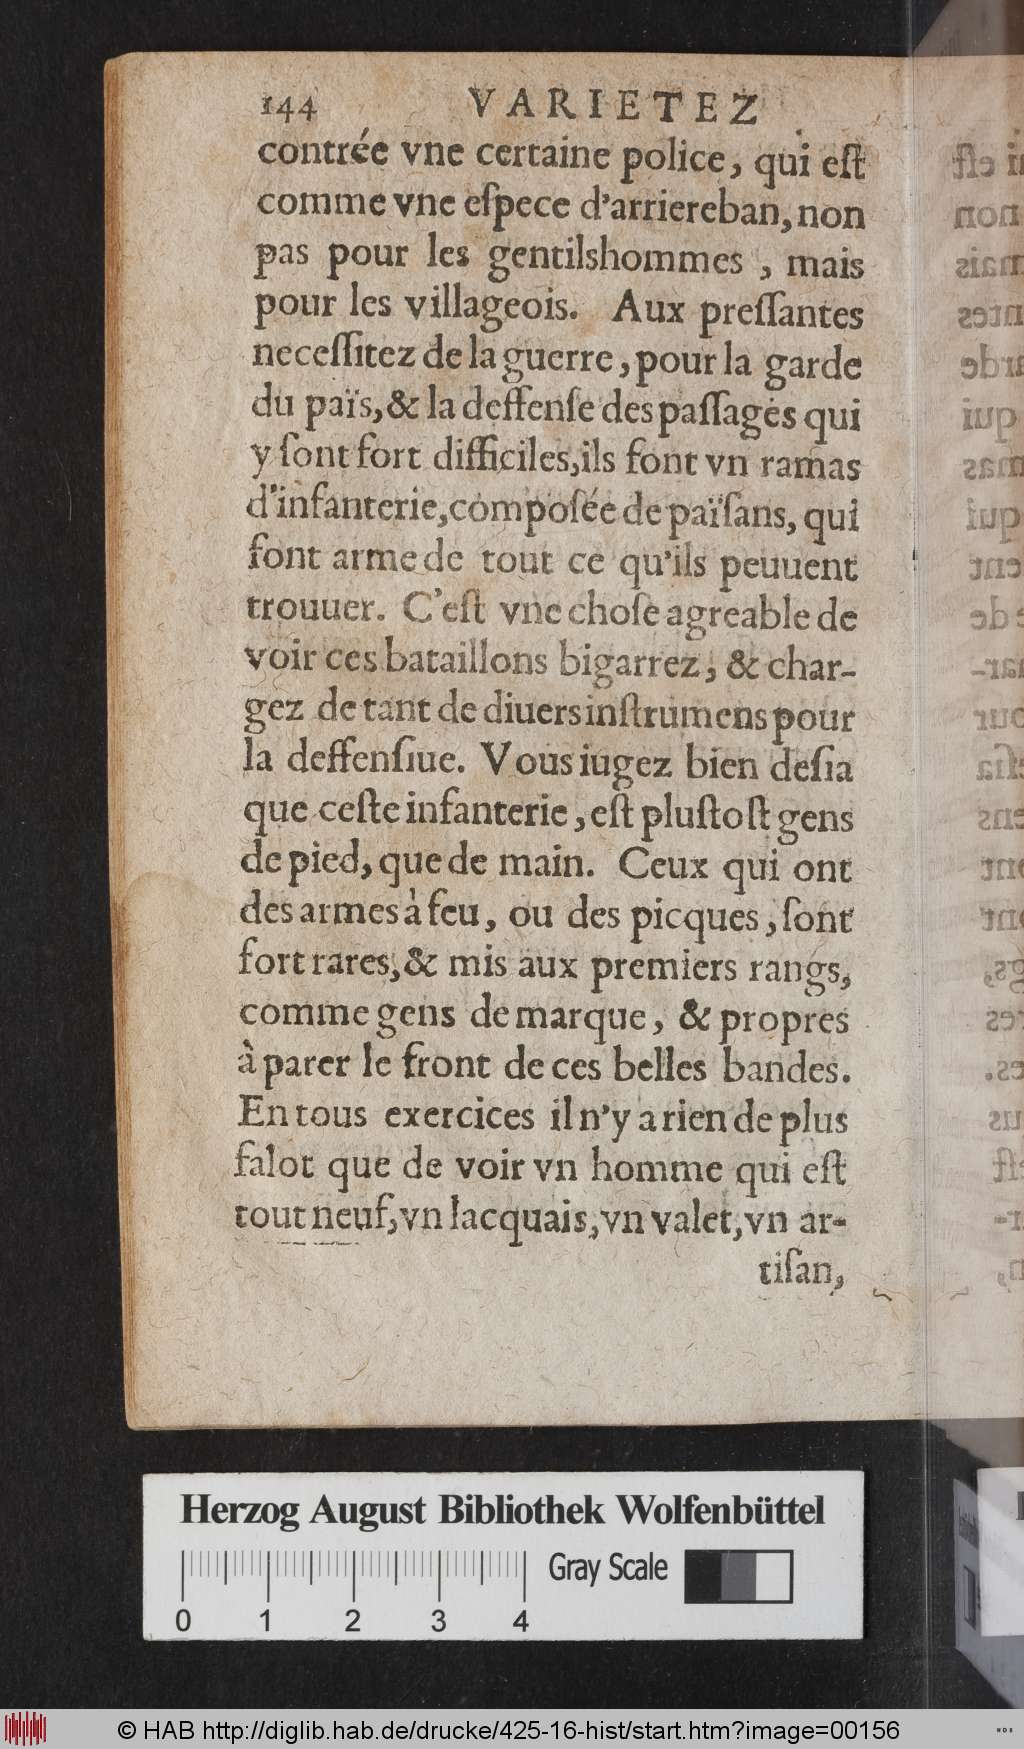 144 VARIETEZ
contrée vne certaine police, qui eſt
comme vne eſpece d'arriereban, non
pas pour les gentilshommes , mais
pour les villageois. Aux preſſantes
neceſſitez de la guerre, pour la garde
du païs, & la deffenſe des paſſages qui
y ſont fort difficiles, ils font vn ramas
d'infanterie, compoſée de païſans, qui
font arme de tout ce qu'ils peuuent
trouuer. C'eſt vne choſe agreable de
voir ces bataillons bigarrez, & char-
gez de tant de diuers inſtrumens pour
la deffenſiue. Vous iugez bien deſia
que ceſte infanterie, eſt pluſtoſt gens
de pied, que de main. Ceux qui ont
des armes à feu, ou des picques, ſont
fort rares, & mis aux premiers rangs,
comme gens de marque, & propres
à parer le front de ces belles bandes.
En tous exercices il n'y a rien de plus
falot que de voir vn homme qui eſt
tout neuf, vn lacquais, vn valet, vn ar-
tiſan,
Herzog August Bibliothek Wolfenbüttel
Gray Scale
0 1 2 3 4
© HAB http://diglib.hab.de/drucke/425-16-hist/start.htm?image=00156